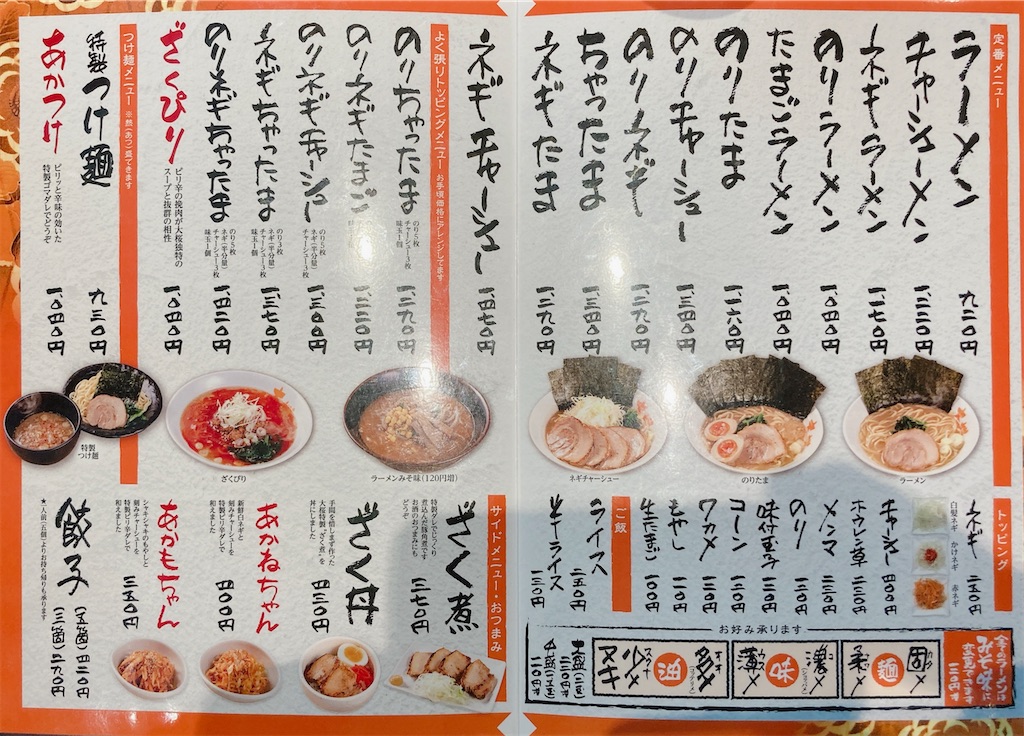 定番メニュー
ラーメン 九二〇円
チャーシューメン 一、二二〇円
ネギラーメン 一、一七〇円
のりラーメン 一、〇四〇円
たまごラーメン 一、〇四〇円
のりたま 一、一六〇円
のりチャーシュー 一、三四〇円
のりネギ 一、二九〇円
ちゃったま 一、三四〇円
ネギたま 一、二九〇円
ネギチャーシュー 一、四七〇円
ラーメン
のりたま
ネギチャーシュー
よく張りトッピングメニュー お手頃価格にアレンジしてます
のりちゃったま 一、二九〇円
のり5枚
チャーシュー3枚
味玉1個
のりネギたま 一、二二〇円
のりネギチャーシュー 一、三〇〇円
のり5枚
ネギ(半分量)
チャーシュー3枚
ネギちゃったま 一、三七〇円
のり3枚
ネギ(半分量)
チャーシュー3枚
味玉1個
のりネギちゃったま 一、四二〇円
のり5枚
ネギ(半分量)
チャーシュー3枚
味玉1個
ざくぴり 一、〇四〇円
ピリ辛の挽肉が大桜独特の
スープと抜群の相性
つけ麺メニュー ※熱(あつ)盛できます
特製つけ麺 九三〇円
あかつけ 一、〇四〇円
ピリッと辛味の効いた
特製ゴマダレでどうぞ
ラーメンみそ味(120円増)
ざくぴり
特製
つけ麺
トッピング
ネギ 二五〇円
白髪ネギ
かけネギ
赤ネギ
チャーシュー 四〇〇円
ホウレン草
メンマ
のり
味付玉子
コーン
ワカメ
もやし
生たまご
ご飯
ライス
半ライス
全てラーメンは
みそ味に
変更できます
お好み承ります
麺
固め
柔め
味
濃いめ
薄め
油
多め
少なめ
ヌキ
サイドメニュー・おつまみ
ざく煮
特製ダレでじっくり
煮込んだ豚角煮です
お酒のおつまみにも
どうぞ
ざく丼 四三〇円
手間を惜しまず作った
大桜特製“ざく煮”を
丼にしました
あかねちゃん 四〇〇円
新鮮白ネギと
刻みチャーシューを
特製ピリ辛ダレで
和えました
あかもちゃん 三五〇円
シャキシャキのもやしと
刻みチャーシューを
特製ピリ辛ダレで
和えました
餃子
(五箇)
(三箇)
★一人前(五個)よりお持ち帰りも承ります